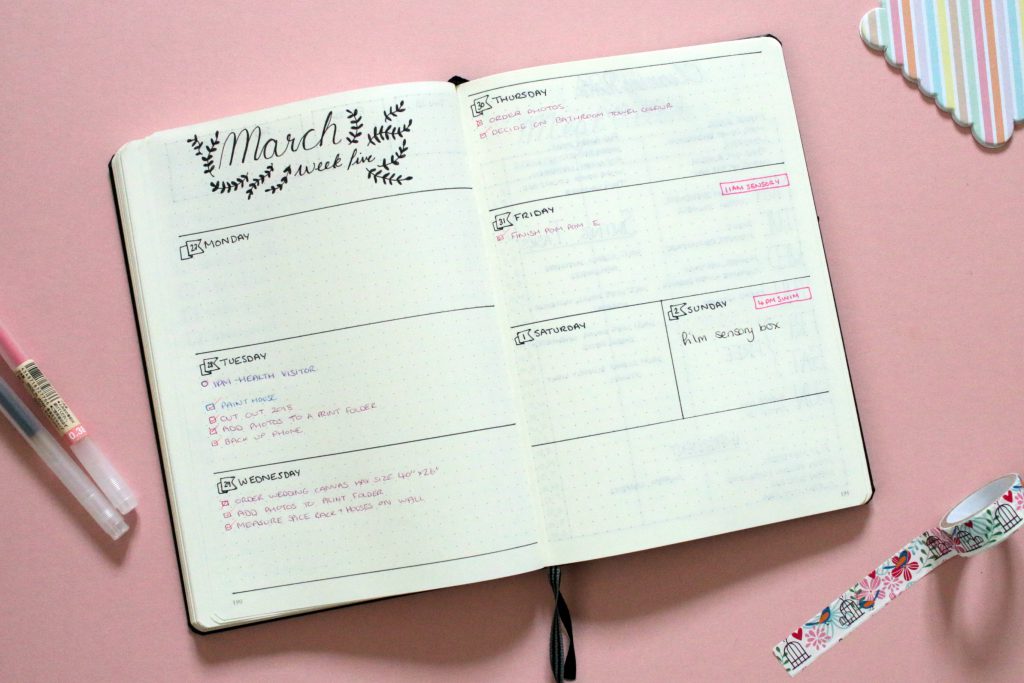 March
week five
27 MONDAY
28 TUESDAY
1PM - HEALTH VISITOR
PAINT HOUSE
CUT OUT
ADD PHOTOS TO A PRINT FOLDER
BACK UP PHONE
29 WEDNESDAY
ORDER WEDDING CANVAS MAX SIZE 40" x 26"
ADD PHOTOS TO PRINT FOLDER
MEASURE SPICE RACK + HOUSES ON WALL
190
30 THURSDAY
ORDER PHOTOS
DECIDE ON BATHROOM TOWEL COLOUR
11AM SENSORY
31 FRIDAY
FINISH POM POM E
1 SATURDAY
2 SUNDAY
4PM SWIM
Film sensory box
191
0.38